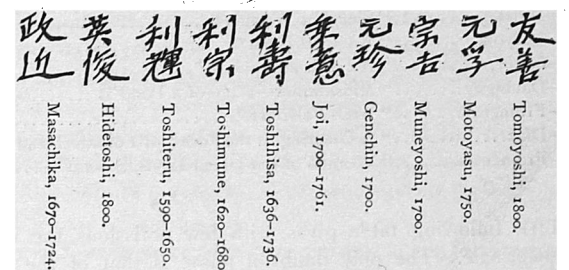 友善 Tomoyoshi, 1800.
元孚 Motoyasu, 1750.
宗吉 Muneyoshi, 1700.
元珍 Genchin, 1700.
乗意 Joi, 1700-1761.
利壽 Toshihisa, 1636-1736.
利宗 Toshimune, 1620-1680
利輝 Toshiteru, 1590-1650.
英俊 Hidetoshi, 1800.
政近 Masachika, 1670-1724.